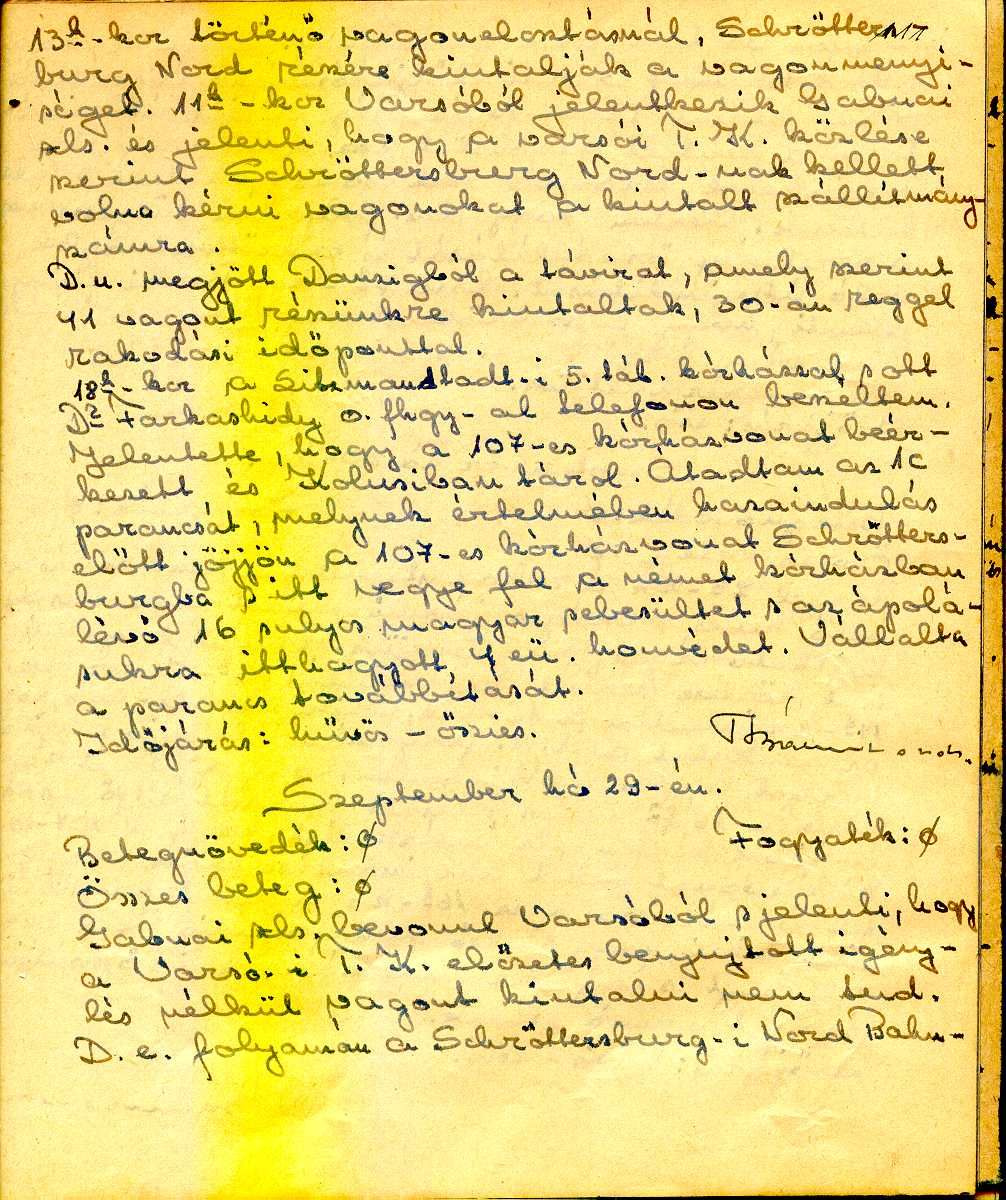 13h-kor történő vagonelosztásnál, Schrötters-
burg Nord részére kiutalják a vagonmenyi-
séget. 11h-kor Varsóból jelentkezik Gabnai
zls. és jelenti, hogy a varsói T. K. közlése
szerint Schröttersburg Nord-nak kellett
volna kérni vagonokat a kiutalt szállítmány-
számra.
D.u. megjött Danzigból a távirat, amely szerint
41 vagont részünkre kiutaltak, 30-án reggel
rakodási időponttal.
18h-kor a Litzmandtadt-i 5. táb. kórházzal s ott
Dr Farkashidy o. fhgy-al telefonon beszéltem.
Jelentette, hogy a 107-es kórházvonat beér-
kezett és Kolusiban tárol. Átadtam az 1c
parancsát, melynek értelmében hazaindulás
előtt jöjjön a 107-es kórházvonat Schrötters-
burgba s itt vegye fel a német kórházban
lévő 16 sulyos magyar sebesültet s az ápolá-
sukra itthagyott 4 eü. honvédet. Vállalta
a parancs továbbítását.
Időjárás: hűvös – őszies.
Szeptember hó 29-én.
Betegnövedék: ø Fogyaték: ø
Összes beteg: ø
Gabnai zls. bevonul Varsóból s jelenti, hogy
a Varsó-i T. K. előzetes benyujtott igény-
lés nélkül vagont kiutalni nem tud.
D. e. folyamán a Schröttersburg-i Nord Bahn-